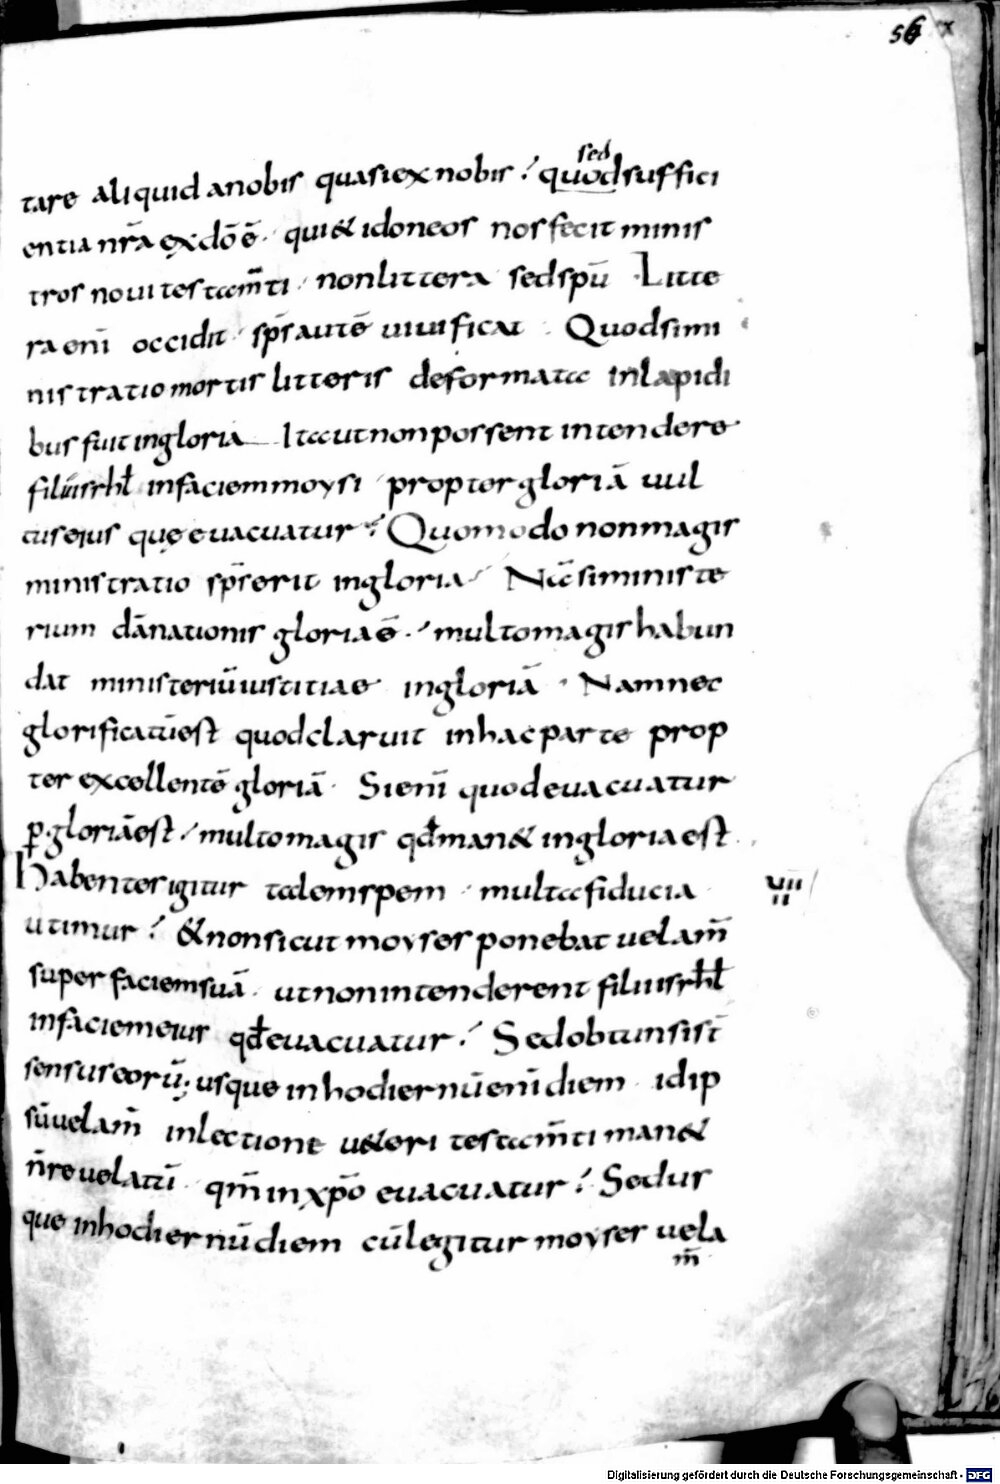 56
sed
tare aliquid anobis quasi ex nobis ? quod suffici
entia nr̄a ex dō ē · qui & idoneos nos fecit minis
tros noui testam̄ti · non littera sed spū · Litte
ra enī occidit · sp̄s autē uiuificat · Quod si mi
nistratio mortis litteris deformata in lapidi
bus fuit in gloria Ita ut non possent intendere
filii isrhl̄ in faciem moysi propter gloriā uul
tus eius quę euacuatur ? Quomodo non magis
ministratio sp̄s erit in gloria Nā si ministe
rium dānationis gloria ē · multo magis habun
dat ministeriū iustitiae in gloriā · Nam nec
glorificatū est quod claruit in hac parte prop
ter excellentē gloriā · Si enī quod euacuatur
ꝑ gloriā est · multo magis qđ man& in gloria est ·
Habentes igitur talem spem · multa fiducia ·
utimur ? & non sicut moyses ponebat uelam̄
super faciem suā · ut non intenderent filii isrhl̄
in faciem eius qđ euacuatur ? Sed obtunsi st̄
sensus eorū ; usque in hodiernū enī diem · id ip
sū uelam̄ in lectione u&eri testam̄ti man&
n̄ reuelatū · qm̄ in xp̄o euacuatur ? Sed us
que in hodiernū diem cū legitur moyses uela
m̄
VII
II
Digitalisierung gefördert durch die Deutsche Forschungsgemeinschaft - DFG